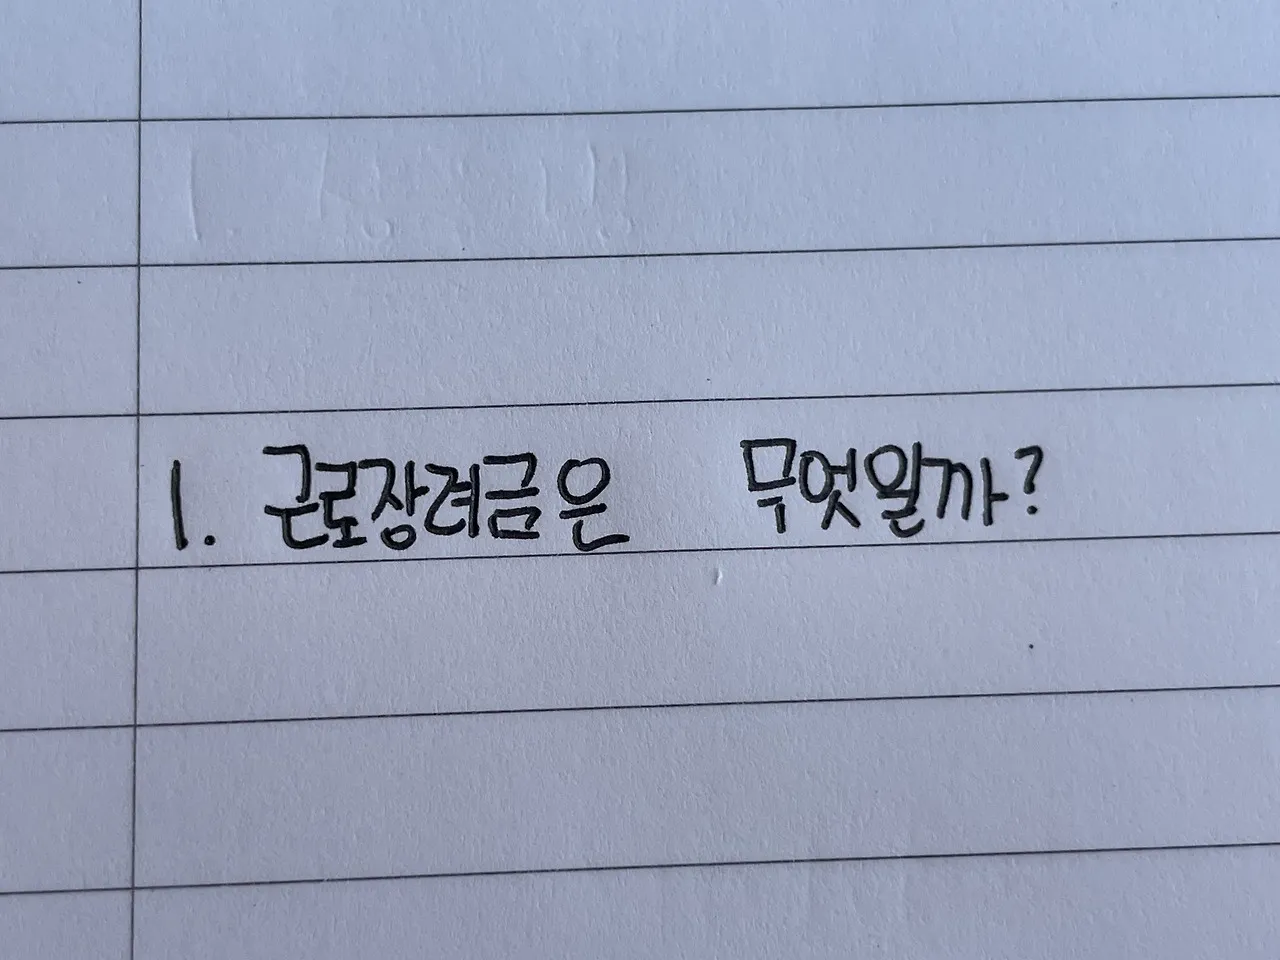 1. 근로장려금은 무엇일까?